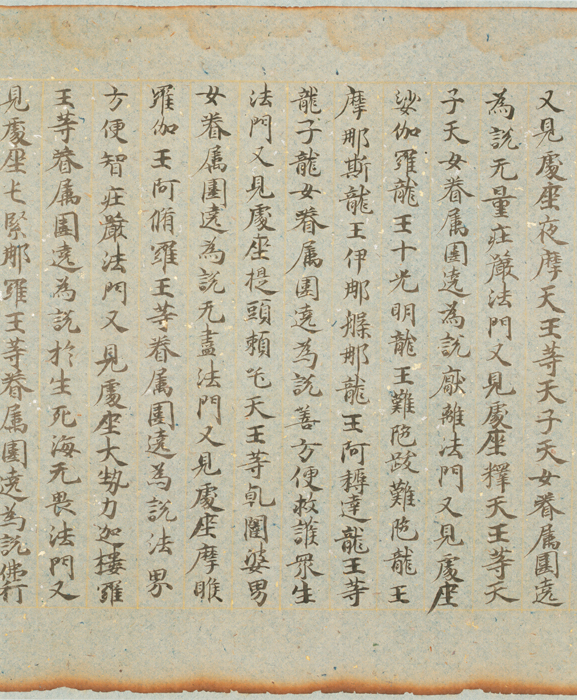 又見處座夜摩天王等天子天女眷属圍遶
為說无量莊嚴法門又見處座釋天王等天
子天女眷属圍遶為說猒離法門又見處座
娑伽羅龍王十光明龍王難陁跋難陁龍王
摩那斯龍王伊那槃那龍王阿耨達龍王等
龍子龍女眷属圍遶為說善方便救誰眾生
法門又見處座提頭賴吒天王等乹闥婆男
女眷属圍遶為說无盡法門又見處座摩睺
羅伽王阿脩羅王等眷属圍遶為說法界
方便智莊嚴法門又見處座大勢力迦樓羅
王等眷属圍遶為說於生死海无畏法門又
見處座七緊那羅王等眷属圍遶為說佛行